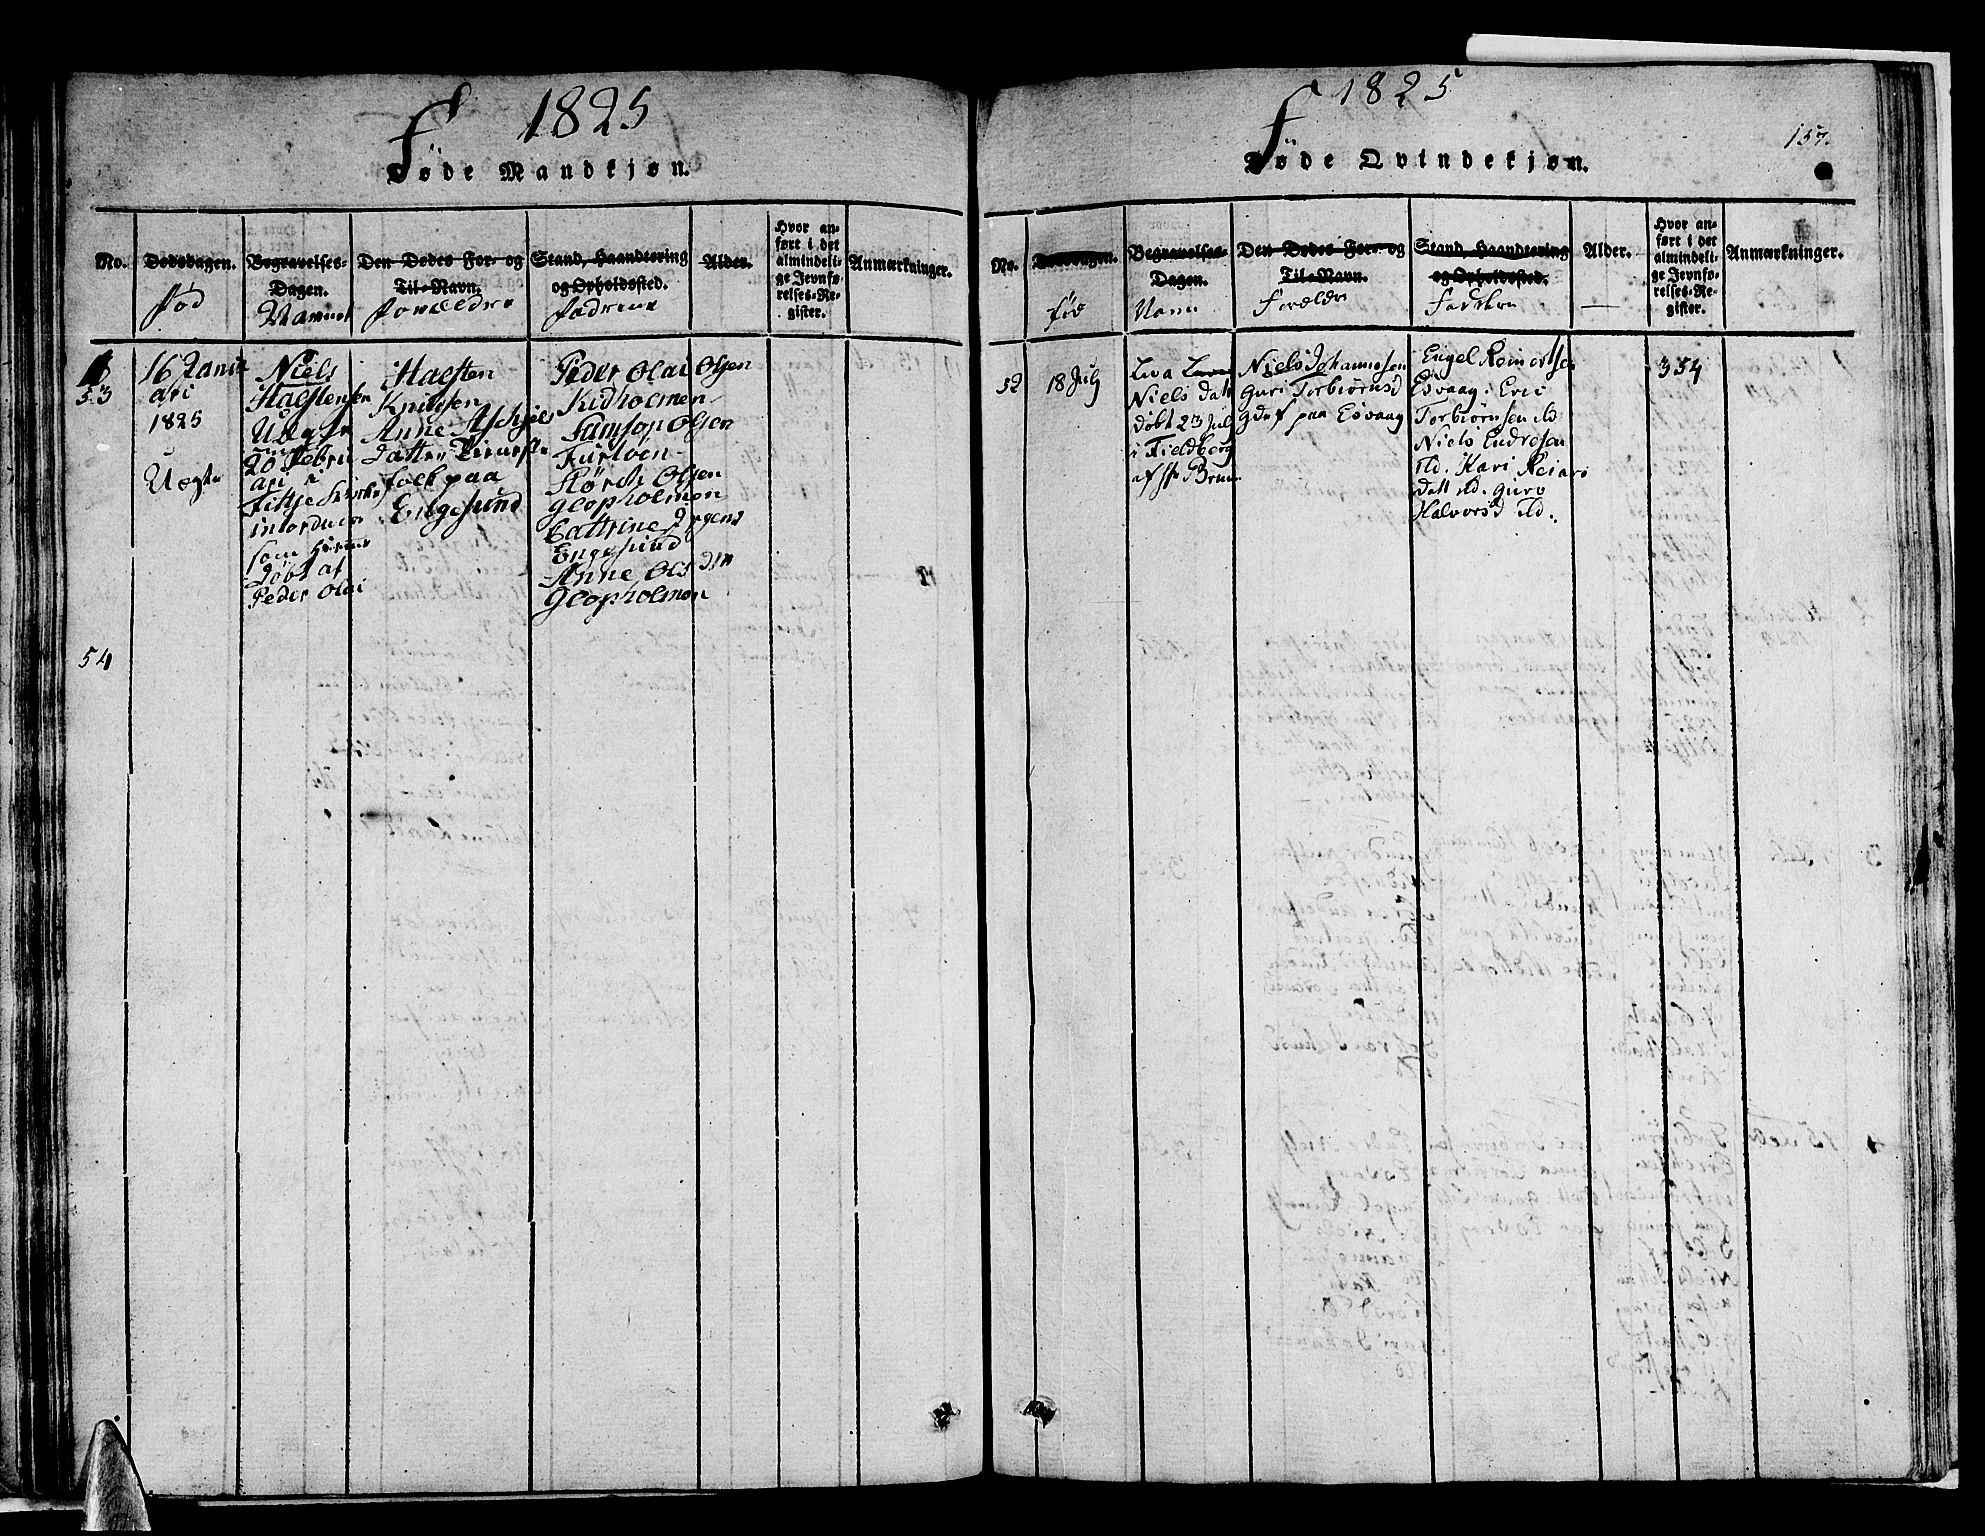 1825
Føde Mandkjøn.
No.
Dødsdagen.
Fød
Begravelses-
Dagen.
Navnet
Den Dødes For- og
Til-Navn.
Forældre
Stand, Haandtering
og Opholdssted.
Fadrene
Alder.
Hvor an-
ført i det
almindeli-
ge Jevnfø-
relses-Re-
gister.
Anmærkninger.
53
16 Janu
ari
1825
Uægte
Niels
Haestensen
Uægte
20 Febru
ari
Fittje Kirke
som
Døbt af
Peder Olai
Haesten
Knudsen
Anne
folk paa
Engesund
Peder Olai Olsen
Kidholmen
Samson Olsen
Olsen
Glopholmen
Cathrine
Engesund
Anne Ols
Glopholmen
54
1825
157.
Føde Qvindekjøn.
No.
Dødsdagen.
fød
Begravelses-
Dagen.
Navn
Den Dødes For- og
Til-Navn.
Forældre
Stand, Haandtering
og Opholdssted.
Faddere
Alder.
—
Hvor an-
ført i det
almindeli-
ge Jevnfø-
relses-Re-
gister.
Anmærkninger.
52
18 July
Niels Datt
døbt 23 Jul
i Fieldberg
af Hr Bruun
Niels Johannesen
Guri Torbiørnsd
gdsf paa Esvaag
Engel Reinertsen
Esvaag. Eric
Torbiørnsen ibd.
Niels Endresen
ibd. Kari Reiars
Datt ibd. Guro
Halvorsd ibd.
354